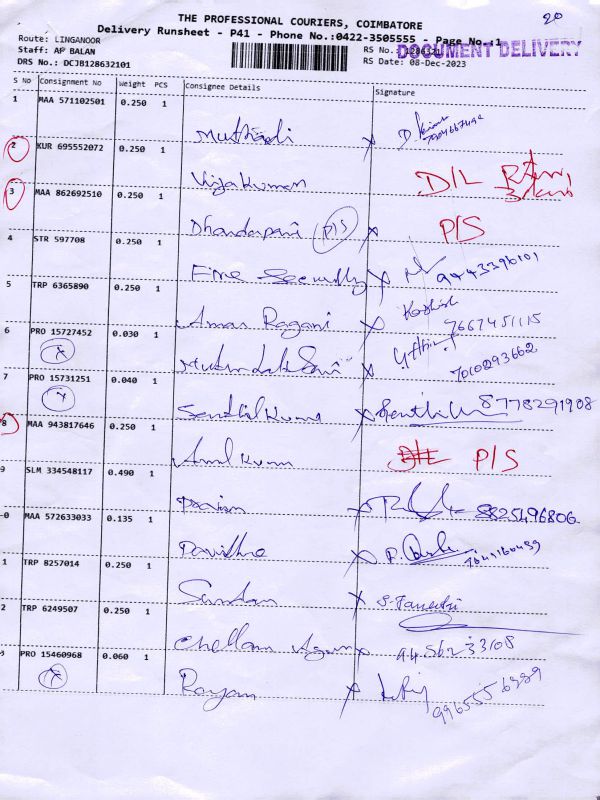 20
THE PROFESSIONAL COURIERS, COIMBATORE
Delivery Runsheet - P41 - Phone No.:0422-3505555 - Page No.:1
Route: LINGANOOR
RS No.: 1286321
DOCUMENT DELIVERY
Staff: AP BALAN
RS Date: 08-Dec-2023
DRS No.: DCJB128632101
S No Consignment No Weight PCS Consignee Details Signature
1 MAA 571102501 0.250 1
2 KUR 695552072 0.250 1 Vijakumar D/L
3 MAA 862692510 0.250 1 Dhandapani P/S P/S
4 STR 597708 0.250 1 Fire Security 9443396101
5 TRP 6365890 0.250 1 Aman Ragani 7667451115
6 PRO 15727452 0.030 1 7010293662
7 PRO 15731251 0.040 1 Senthilkumar 8778291908
8 MAA 943817646 0.250 1 Arul kumar D/L P/S
9 SLM 334548117 0.490 1 8825496806
0 MAA 572633033 0.135 1 Pavithra
1 TRP 8257014 0.250 1
2 TRP 6249507 0.250 1 Chellam 94862 33108
PRO 15460968 0.060 1 Rayan 9965556389